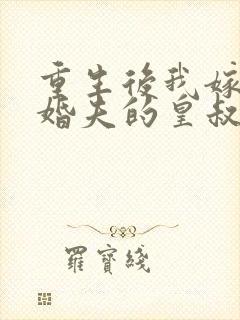 重生後我嫁
婚夫的皇叔
羅寶綫